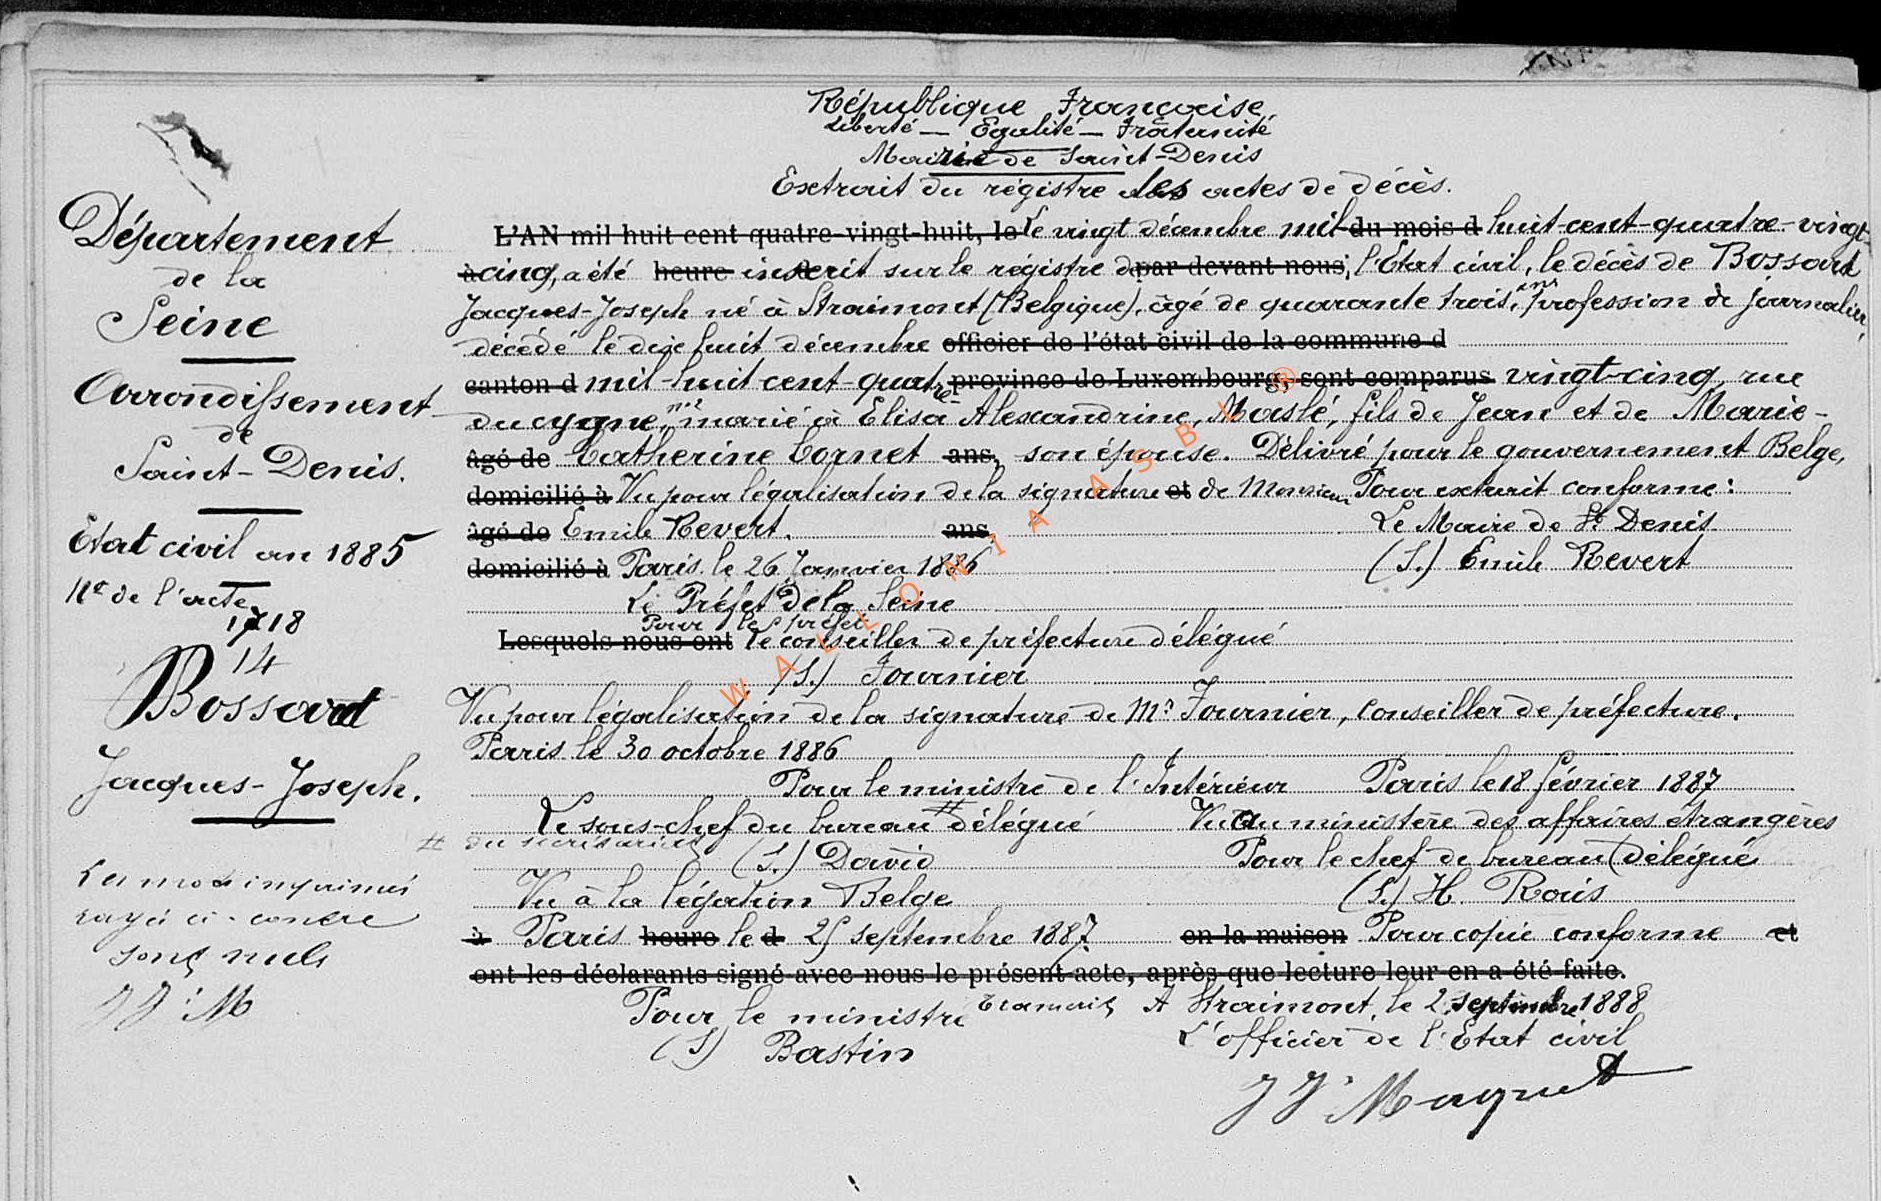 République Française
Liberté — Egalité — Fraternité
Mairie de Saint-Denis
Extrait du régistre des actes de décès.
Département
de la
Seine
Arrondissement
de
Saint-Denis.
Etat civil an 1885
No de l'acte
1718
14
Bossart
Jacques-Joseph.
Les mots imprimés
rayés ci-contre
sont nuls
J J M
L'AN mil huit cent quatre-vingt-huit, le Le vingt décembre mil du mois d huit-cent-quatre-vingt-
à cinq, a été heure inscrit sur le régistre de par devant nous, l'Etat civil, le décès de Bossart
Jacques-Joseph né à Straimont (Belgique), âgé de quarante trois, ans profession de journalier,
décédé le dix huit décembre officier de l'état civil de la commune d
canton d mil-huit cent-quatre province de Luxembourg, sont comparus vingt-cinq, rue
du cygne, no 2 marié à Elisa Alexandrine, Maslé, fils de Jean et de Marie-
âgé de Catherine Cornet ans, son épouse. Délivré pour le gouvernement Belge,
domicilié à Vu pour légalisation de la signature et de Monsieur Pour extrait conforme:
âgé de Emile Revert. ans, Le Maire de St Denis
domicilié à Paris le 26 Janvier 1886 (S.) Emile Revert
Le Préfet De la Seine
Pour le préfet
Lesquels nous ont le conseiller de préfecture délégué
(S.) Fournier
Vu pour légalisation de la signature de Mr Fournier, conseiller de préfecture.
Paris le 30 octobre 1886
Pour le ministre de l'Intérieur Paris le 18 février 1887
Le sous-chef du bureau # délégué Vu au ministère des affaires étrangères
# du secrétariat (S.) David Pour le chef de bureau délégué
Vu à la légation Belge (S.) H. Rouis
à Paris heure le d 25 septembre 1887 en la maison Pour copie conforme et
ont les déclarants signé avec nous le présent acte, après que lecture leur en a été faite.
Pour le ministre A Straimont, le 2 septembre 1888
(S) Bastin L'officier de l'Etat civil
J J Maquet
WALLONIA ASBL ®